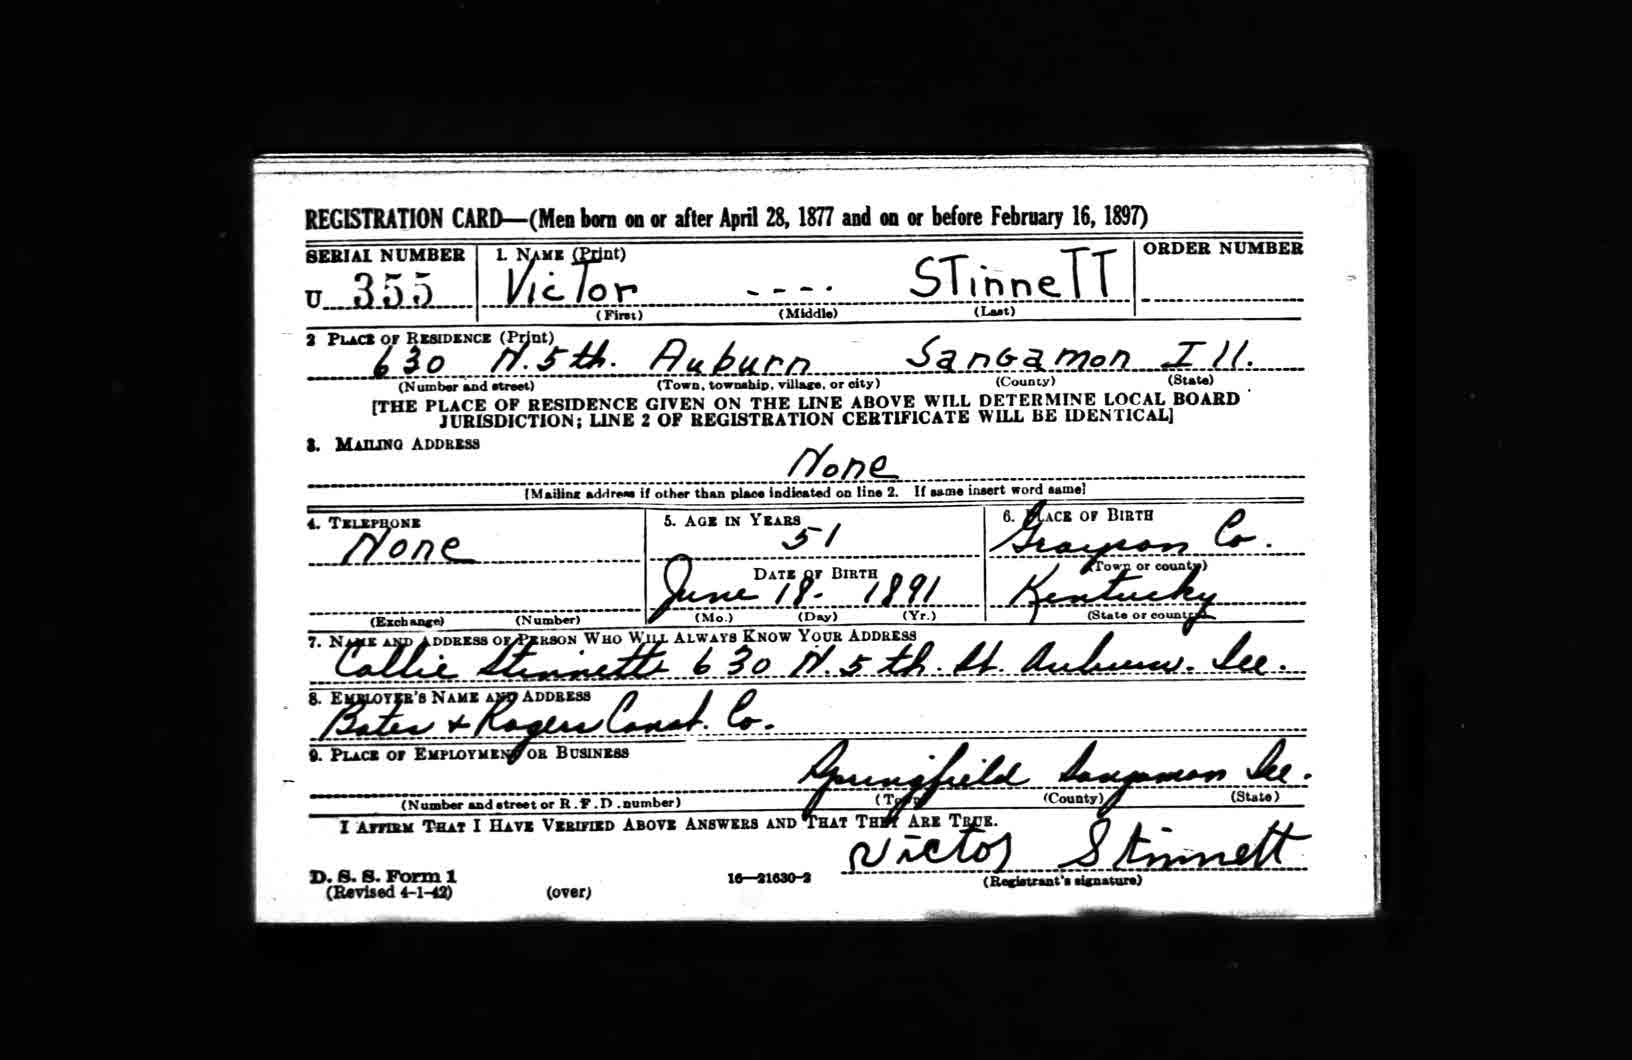 REGISTRATION CARD—(Men born on or after April 28, 1877 and on or before February 16, 1897)
SERIAL NUMBER 1. NAME (Print) ORDER NUMBER
U 355 Victor ---- Stinnett
(First) (Middle) (Last)
2 PLACE OF RESIDENCE (Print)
630 N. 5th. Auburn Sangamon Ill.
(Number and street) (Town, township, village, or city) (County) (State)
[THE PLACE OF RESIDENCE GIVEN ON THE LINE ABOVE WILL DETERMINE LOCAL BOARD
JURISDICTION; LINE 2 OF REGISTRATION CERTIFICATE WILL BE IDENTICAL]
3. MAILING ADDRESS
None
[Mailing address if other than place indicated on line 2. If same insert word same]
4. TELEPHONE 5. AGE IN YEARS 6. PLACE OF BIRTH
None 51 Grayson Co.
DATE OF BIRTH (Town or county)
June 18. 1891 Kentucky
(Exchange) (Number) (Mo.) (Day) (Yr.) (State or country)
7. NAME AND ADDRESS OF PERSON WHO WILL ALWAYS KNOW YOUR ADDRESS
Callie Stinnett 630 N. 5th. St. Auburn. Ill.
8. EMPLOYER'S NAME AND ADDRESS
Bates + Rogers Const. Co.
9. PLACE OF EMPLOYMENT OR BUSINESS
Springfield Sangamon Ill.
(Number and street or R. F. D. number) (Town) (County) (State)
I AFFIRM THAT I HAVE VERIFIED ABOVE ANSWERS AND THAT THEY ARE TRUE.
Victor Stinnett
D. S. S. Form 1 16—21630-2 (Registrant's signature)
(Revised 4-1-42) (over)